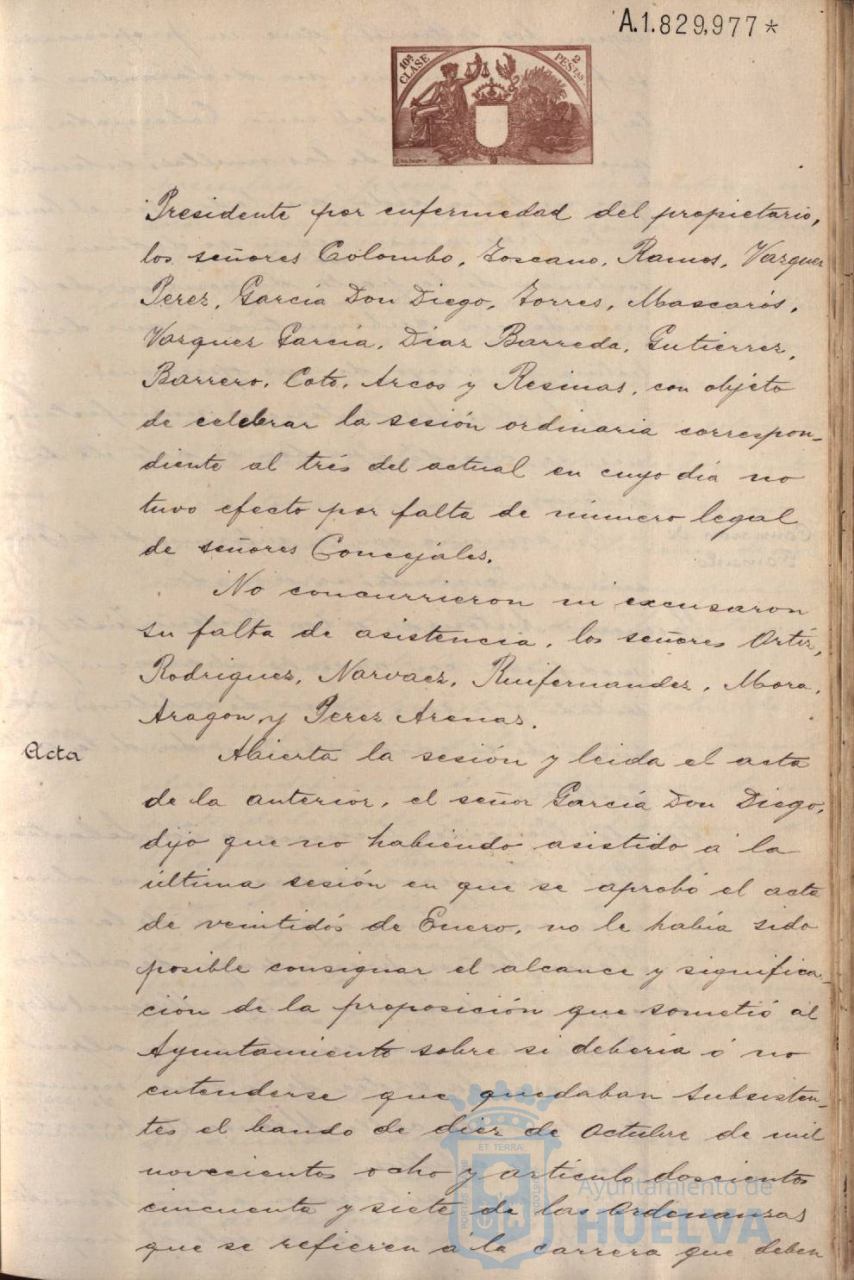 A.1.829,977*
10ª CLASE
2 PESTAS
Presidente por enfermedad del propietario,
los señores Colombo, Toscano, Ramos, Vazquez
Perez, García Don Diego, Torres, Mascarós,
Vazquez García, Diaz Barreda, Gutierrez,
Barrero, Coto, Arcos y Resinas, con objeto
de celebrar la sesión ordinaria correspon-
diente al trés del actual en cuyo día no
tuvo efecto por falta de número legal
de señores Concejáles.
No concurrieron ni excusaron
su falta de asistencia, los señores Ortiz,
Rodriguez, Narvaez, Ruifernandez, Mora,
Aragon, y Perez Arenas.
Acta
Abierta la sesión y leida el acta
de la anterior, el señor García Don Diego,
dijo que no habiendo asistido á la
última sesión en que se aprobó el acta
de veintidós de Enero, no le había sido
posible consignar el alcance y significa-
ción de la proposición que sometió al
Ayuntamiento sobre si debería ó no
entenderse que quedaban subsisten-
tes el bando de diez de Octubre de mil
novecientos ocho y artículo doscientos
cincuenta y siete de las Ordenanzas
que se refieren á la carrera que deben
ET TERRA
Ayuntamiento de
HUELVA